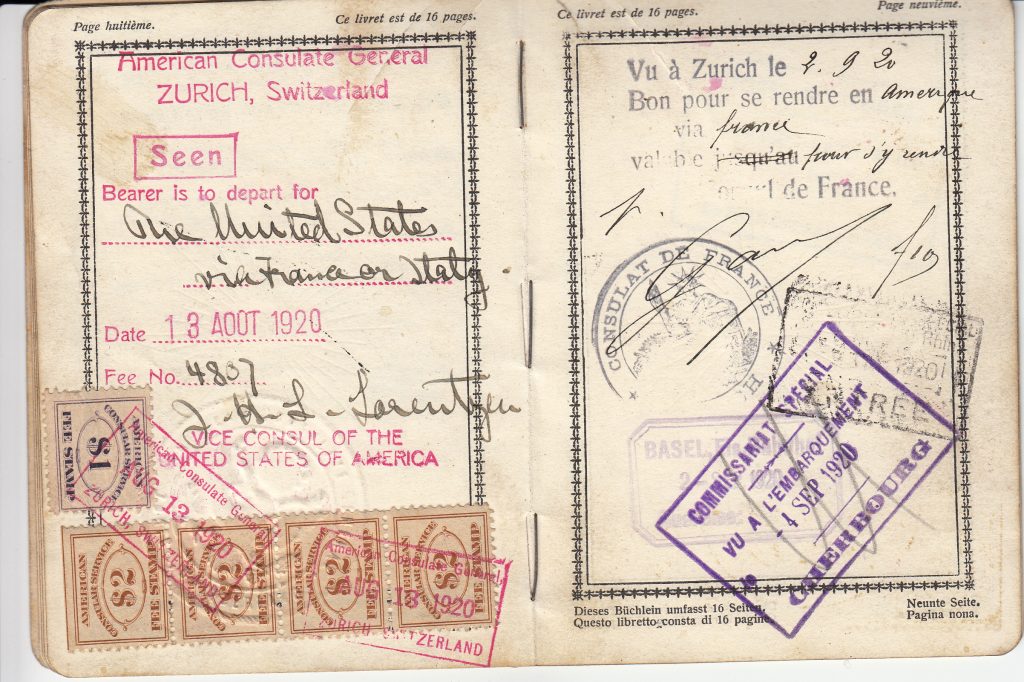 Page huitième.
Ce livret est de 16 pages.
American Consulate General
ZURICH, Switzerland
Seen
Bearer is to depart for
The United States
via France or Italy
Date 13 AOUT 1920
Fee No. 4807
J. H. L. Lorentzen
VICE CONSUL OF THE
UNITED STATES OF AMERICA
AMERICAN
CONSULAR SERVICE
$1
FEE STAMP
American Consulate General
AUG 13 1920
ZURICH, SWITZERLAND
AMERICAN
CONSULAR SERVICE
$2
FEE STAMP
AMERICAN
CONSULAR SERVICE
$2
FEE STAMP
AMERICAN
CONSULAR SERVICE
$2
FEE STAMP
AMERICAN
CONSULAR SERVICE
$2
FEE STAMP
American Consulate General
AUG 13 1920
ZURICH, SWITZERLAND
Ce livret est de 16 pages.
Page neuvième.
Vu à Zurich le 2. 9 20
Bon pour se rendre en Amerique
via france
valable jusqu'au pour s'y rendre
Consul de France.
CONSULAT DE FRANCE
ENTREE
BASEL,
COMMISSARIAT SPECIAL
VU A L'EMBARQUEMENT
4 SEP 1920
CHERBOURG
Dieses Büchlein umfasst 16 Seiten.
Questo libretto consta di 16 pagine.
Neunte Seite.
Pagina nona.